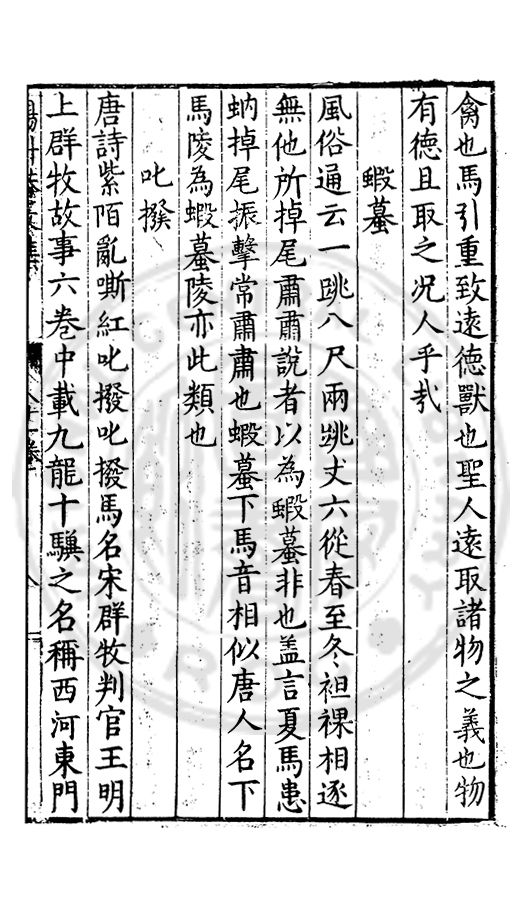 禽也馬引重致遠德獸也聖人遠取諸物之義也物
有德且取之况人乎㢤
蝦蟇
風俗通云一跳八尺兩跳丈六從春至冬袒裸相逐
無他所掉尾肅肅說者以為蝦蟇非也盖言夏馬患
蚋掉尾振擊常肅肅也蝦蟇下馬音相似唐人名下
馬陵為蝦蟇陵亦此類也
叱撥
唐詩紫陌亂嘶紅叱撥叱撥馬名宋群牧判官王明
上群牧故事六巻中載九龍十驥之名稱西河東門